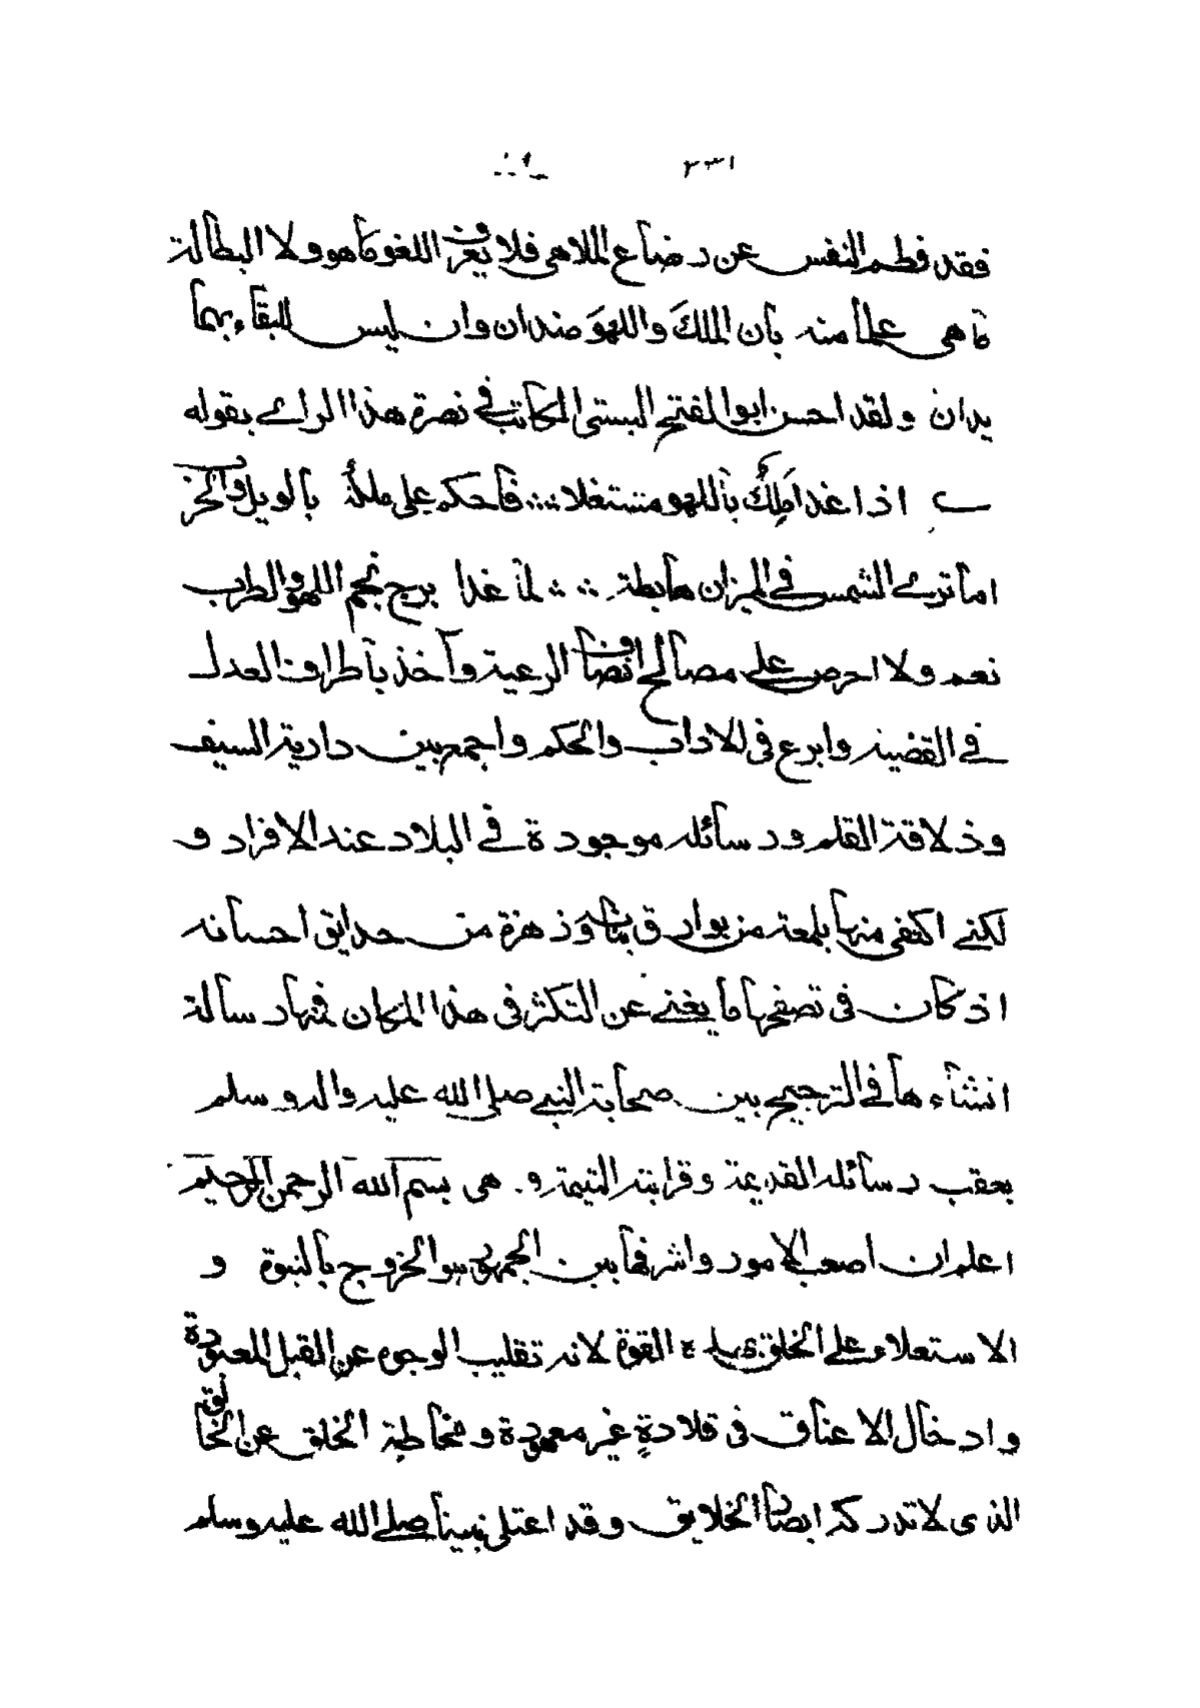 ٢٣١
فقد فطم النفس عن رضاع الملاهى فلا يعرف اللغو ما هو ولا البطالة
ما هى علما منه بان الملكَ واللهوَ ضدان وان ليس للبقاء بهما
يدان ولقد احسن ابو الفتح البستى الكاتب فى نصرة هذا الراى بقوله
اذا غدا مَلِكٌ باللهو مشتغلا ∴ فاحكم على ملكه بالويل والحرب
اما ترى الشمس فى الميزان هابطة ∴ لما غدا برج نجم اللهو والطرب
نعم ولا احرص على مصالح انصاف الرعية وآخذ باطراف العدل
فى القضية وابرع فى الاداب والحكم واجمع بين دارية السيف
وذلاقة القلم ورسائله موجودة فى البلاد عند الافراد و
لكنى اكتفى منها بلمعة من بوارق بيانه وزهرة من حدايق احسانه
اذ كان فى تصفحها ما يغنى عن التكثر فى هذا المكان فمنها رسالة
انشاءها فى الترجيح بين صحابة النبى صلى الله عليه واله وسلم
بعقب رسائله القديمة وقرابته القيمة وهى بسم الله الرحمن الرحيم
اعلم ان اصعب الامور واشرفها بين الجمهور هو الخروج بالنبوة و
الاستعلاء على الخلق القوة لانه تقليب الوجوه عن القبل المعبودة
وادخال الاعناق فى قلادةٍ غير معهودة ومخاطبة الخلق عن الخالق
الذى لا تدركه ابصار الخلايق وقد اعتلى نبينا صلى الله عليه وسلم